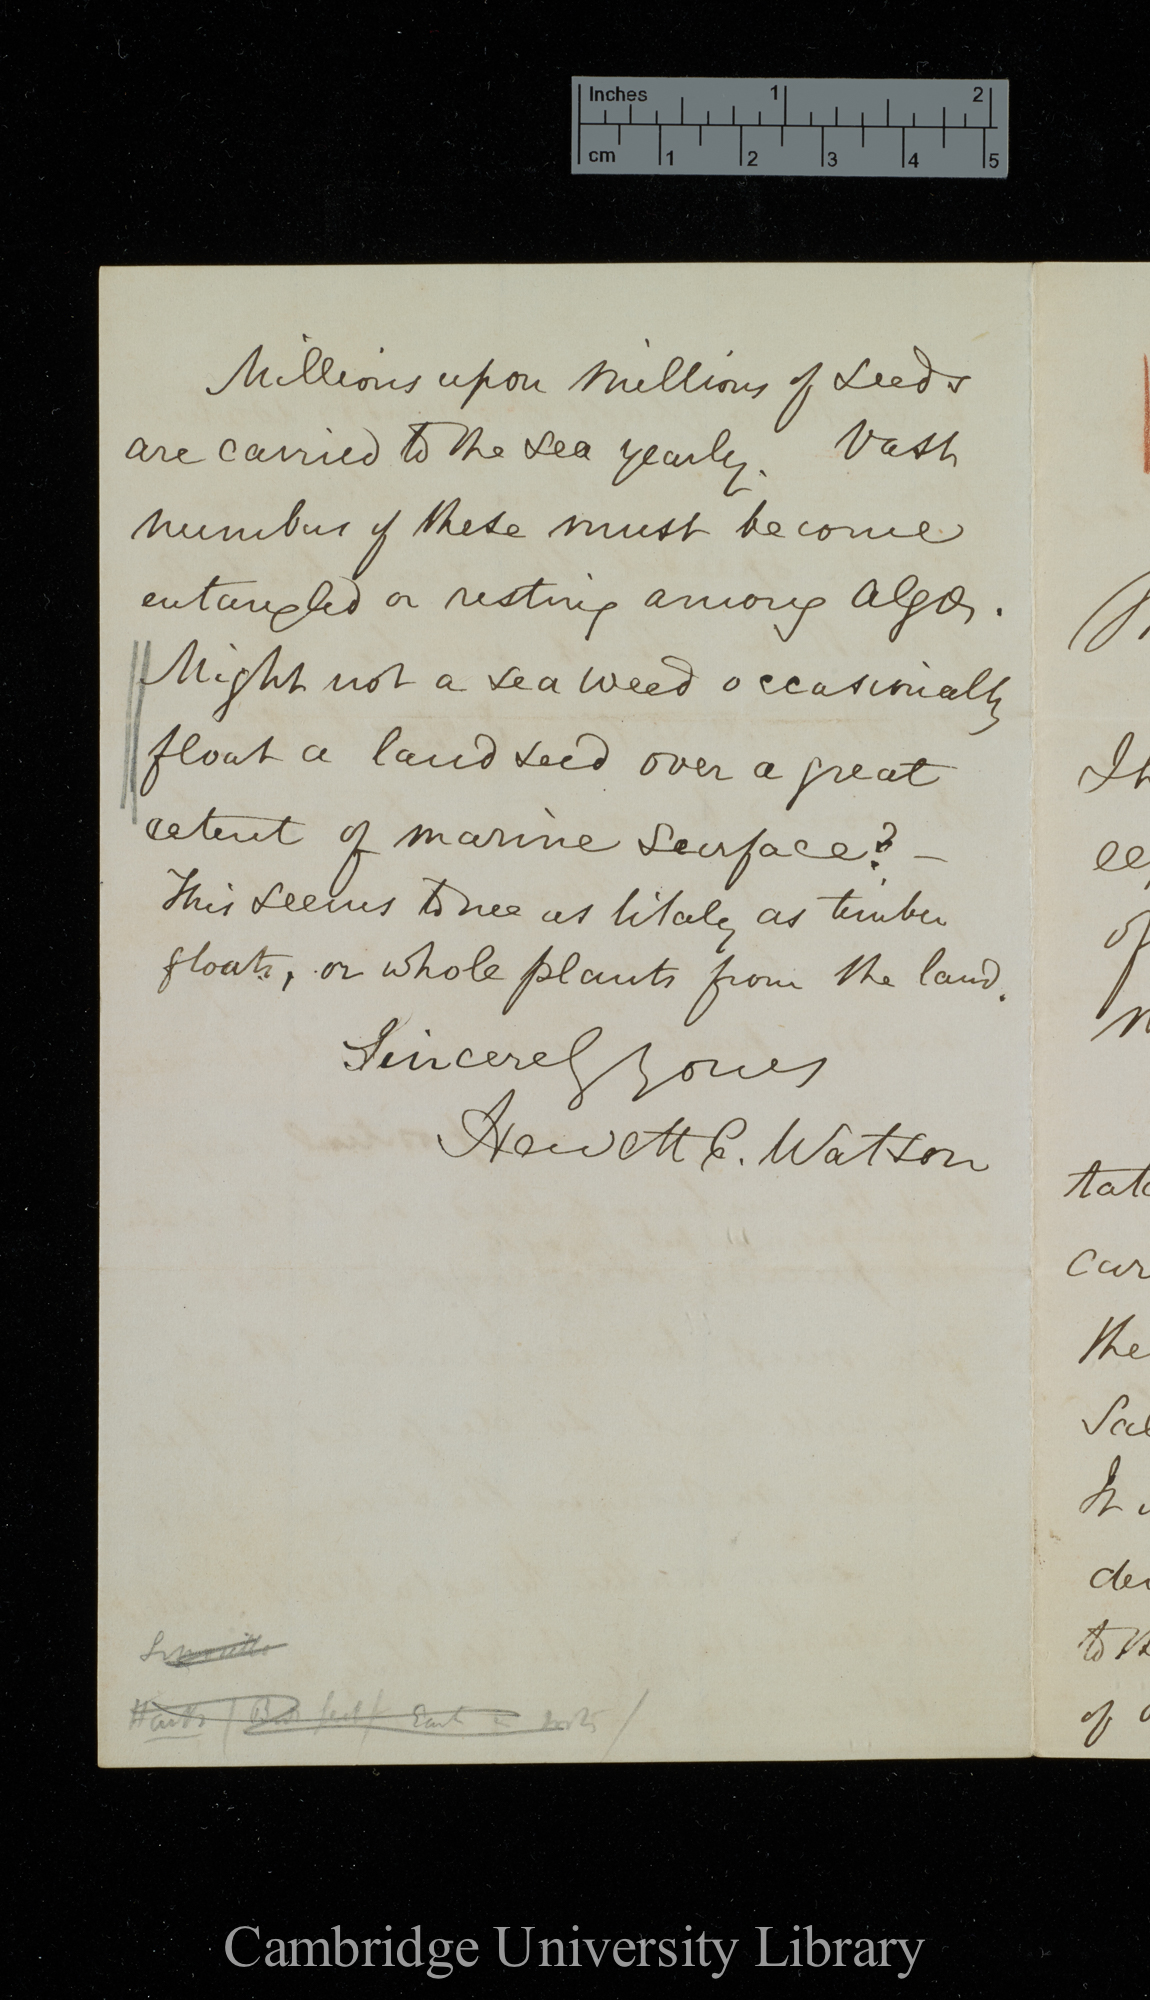 Inches 1 2
cm 1 2 3 4 5
Millions upon millions of seeds
are carried to the sea yearly. Vast
numbers of these must become
entangled or resting among algæ.
Might not a sea weed occasionally
float a land seed over a great
extent of marine surface? —
This seems to me as likely as timber
floats, or whole plants from the land.
Sincerely yours
Hewett C. Watson
Cambridge University Library